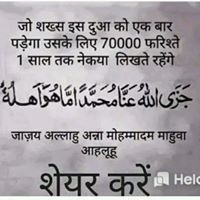 जो शख्स इस दुआ को एक बार
पड़ेगा उसके लिए 70000 फरिश्ते
1 साल तक नेकया लिखते रहेंगे
جَزَى اللهُ عَنَّا مُحَمَّدًا مَّا هُوَ أَهْلُهُ
जाज़य अल्लाहु अन्ना मोहम्मादम माहुवा
आहलूहू
शेयर करें
Helo